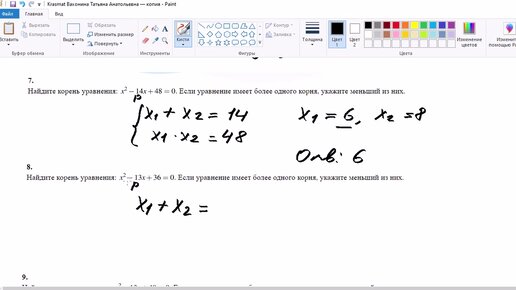 Krasmat Вахонина Татьяна Анатольевна — копия - Paint
Файл Главная Вид
Вставить
Вырезать
Копировать
Буфер обмена
Выделить
Обрезать
Изменить размер
Повернуть
Изображение
Инструменты
Кисти
Контур
Заливка
Фигуры
Толщина
Цвет 1
Цвет 2
Цвета
Изменение цветов
Изменить с помощью Pa
7.
Найдите корень уравнения: x² − 14x + 48 = 0. Если уравнение имеет более одного корня, укажите меньший из них.
p
x₁ + x₂ = 14
x₁ · x₂ = 48
x₁ = 6, x₂ = 8
Отв: 6
8.
Найдите корень уравнения: x² − 13x + 36 = 0. Если уравнение имеет более одного корня, укажите меньший из них.
p
x₁ + x₂ =
9.